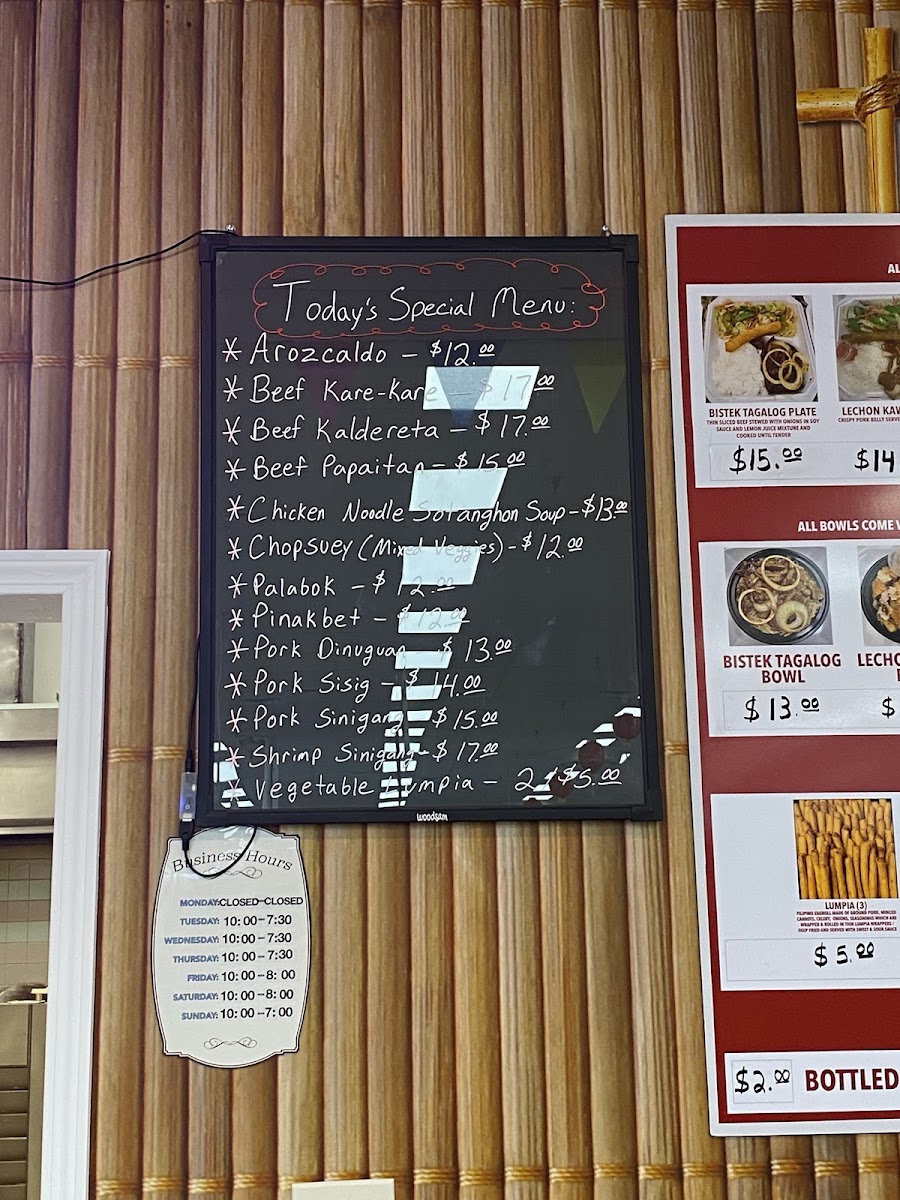 Today's Special Menu:
* Arozcaldo - $12.00
* Beef Kare-Kare - $17.00
* Beef Kaldereta - $17.00
* Beef Papaitan - $15.00
* Chicken Noodle Sotanghon Soup - $13.00
* Chopsuey (Mixed Veggies) - $12.00
* Palabok - $12.00
* Pinakbet - $12.00
* Pork Dinuguan - $13.00
* Pork Sisig - $14.00
* Pork Sinigang - $15.00
* Shrimp Sinigang - $17.00
* Vegetable Lumpia - 2/$5.00
woodsam
Business Hours
MONDAY: CLOSED-CLOSED
TUESDAY: 10:00-7:30
WEDNESDAY: 10:00-7:30
THURSDAY: 10:00-7:30
FRIDAY: 10:00-8:00
SATURDAY: 10:00-8:00
SUNDAY: 10:00-7:00
AL
BISTEK TAGALOG PLATE
THIN SLICED BEEF STEWED WITH ONIONS IN SOY
SAUCE AND LEMON JUICE MIXTURE AND
COOKED UNTIL TENDER
$15.00
LECHON KAW
CRISPY PORK BELLY SERVE
$14
ALL BOWLS COME W
BISTEK TAGALOG
BOWL
$13.00
LECHO
$
LUMPIA (3)
FILIPINO EGGROLL MADE OF GROUND PORK, MINCED
CARROTS, CELERY, ONIONS, SEASONINGS WHICH ARE
WRAPPED & ROLLED IN THIN LUMPIA WRAPPERS/
DEEP FRIED AND SERVED WITH SWEET & SOUR SAUCE
$5.00
$2.00 BOTTLED